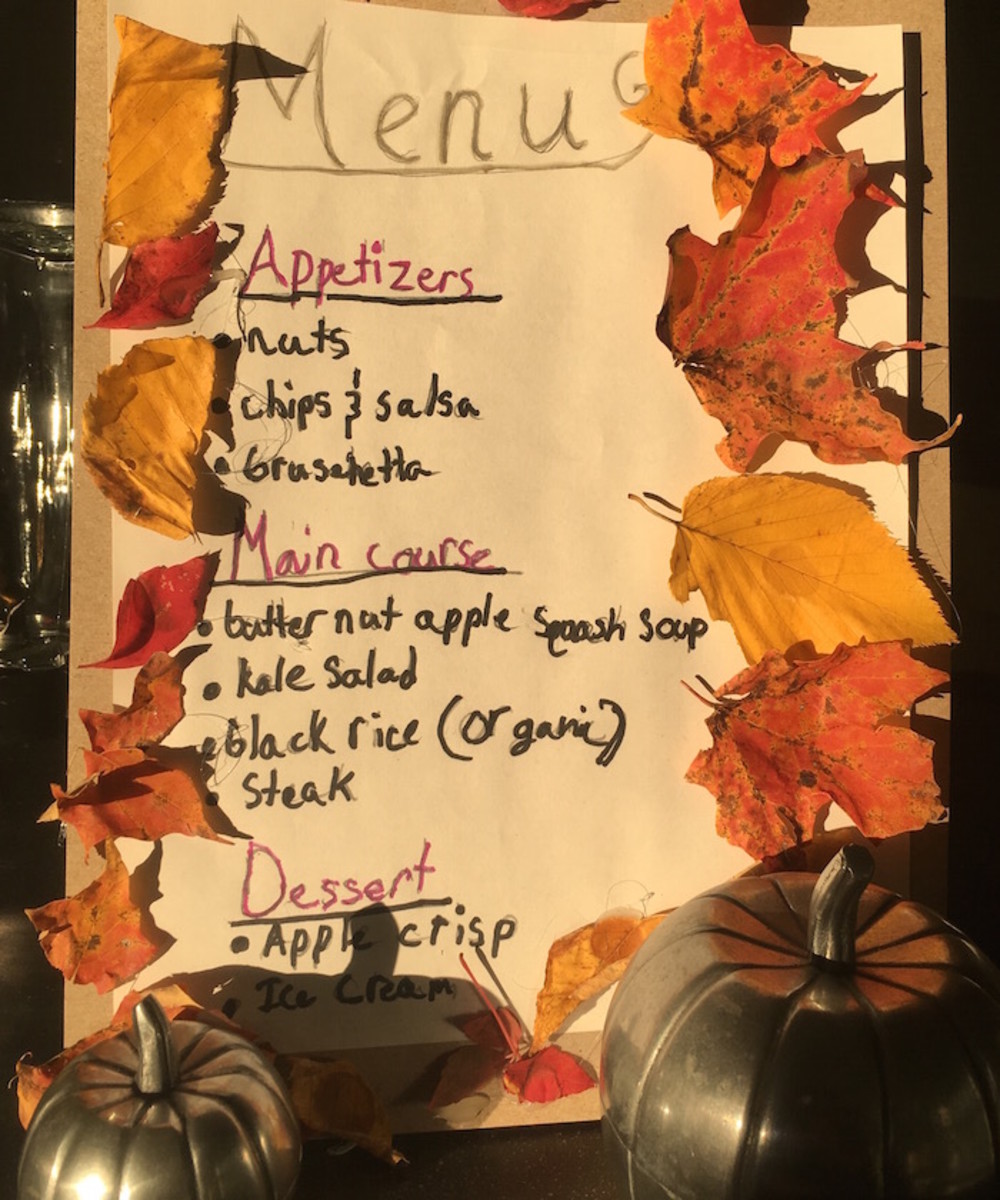 Menu
Appetizers
• nuts
• chips & salsa
• bruschetta
Main course
• butter nut apple squash soup
• kale salad
• black rice (organic)
• Steak
Dessert
• Apple crisp
• Ice Cream